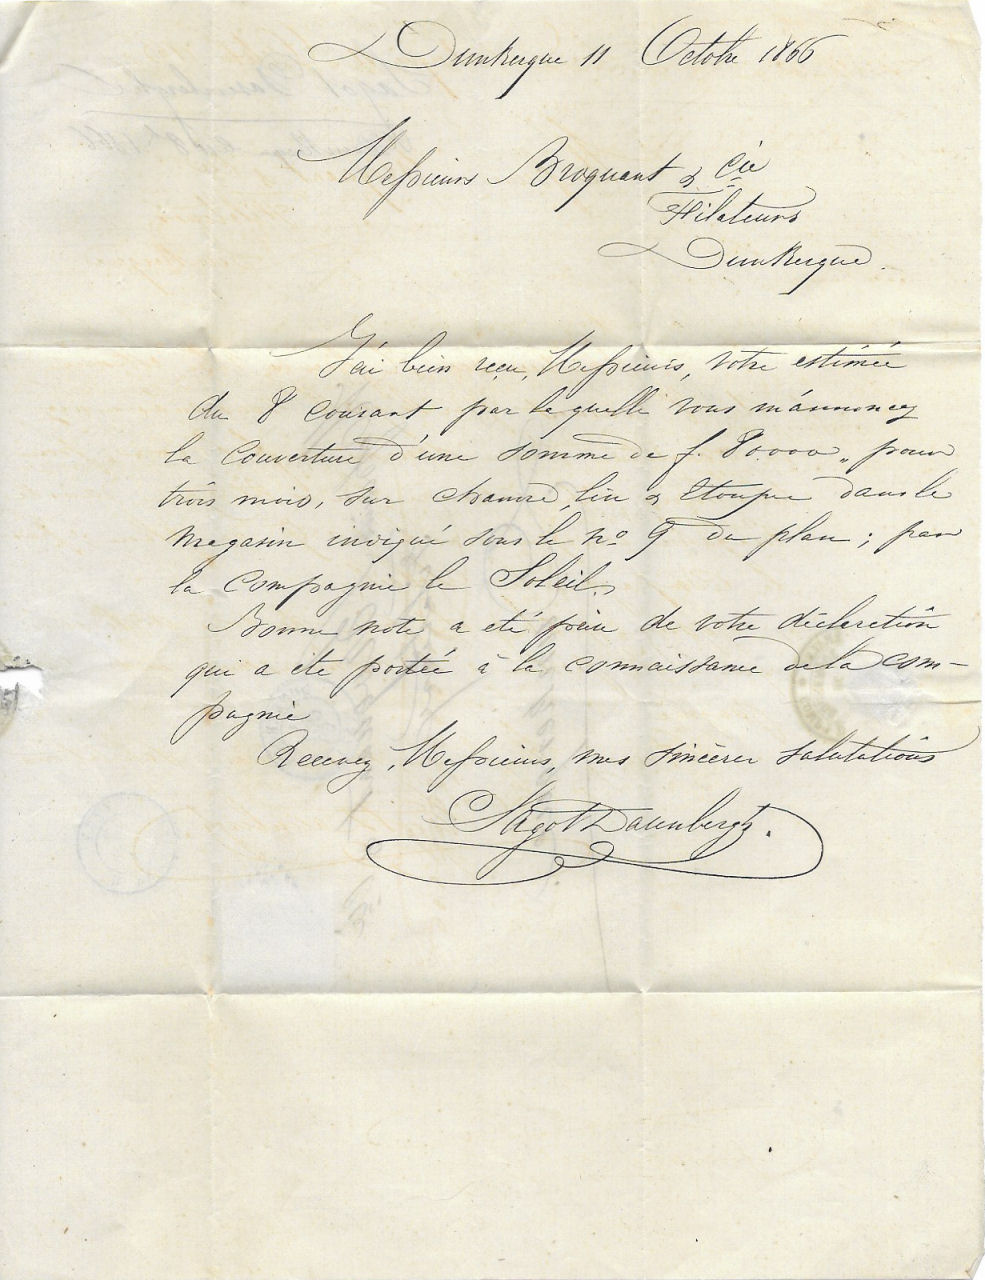 Dunkerque 11 Octobre 1866
Messieurs Broquant & Cie
Filateurs
Dunkerque.
J'ai bien reçu, Messieurs, votre estimée
du 8 courant par laquelle vous m'annoncez
la couverture d'une somme de f. 80.000 „ pour
trois mois, sur chanvre, lin & étoupe dans le
magasin indiqué sous le no 9 du plan ; par
la compagnie le Soleil.
Bonne note a été prise de votre déclaration
qui a été portée à la connaissance de la com-
pagnie
Recevez, Messieurs, mes sincères salutations
Sagot